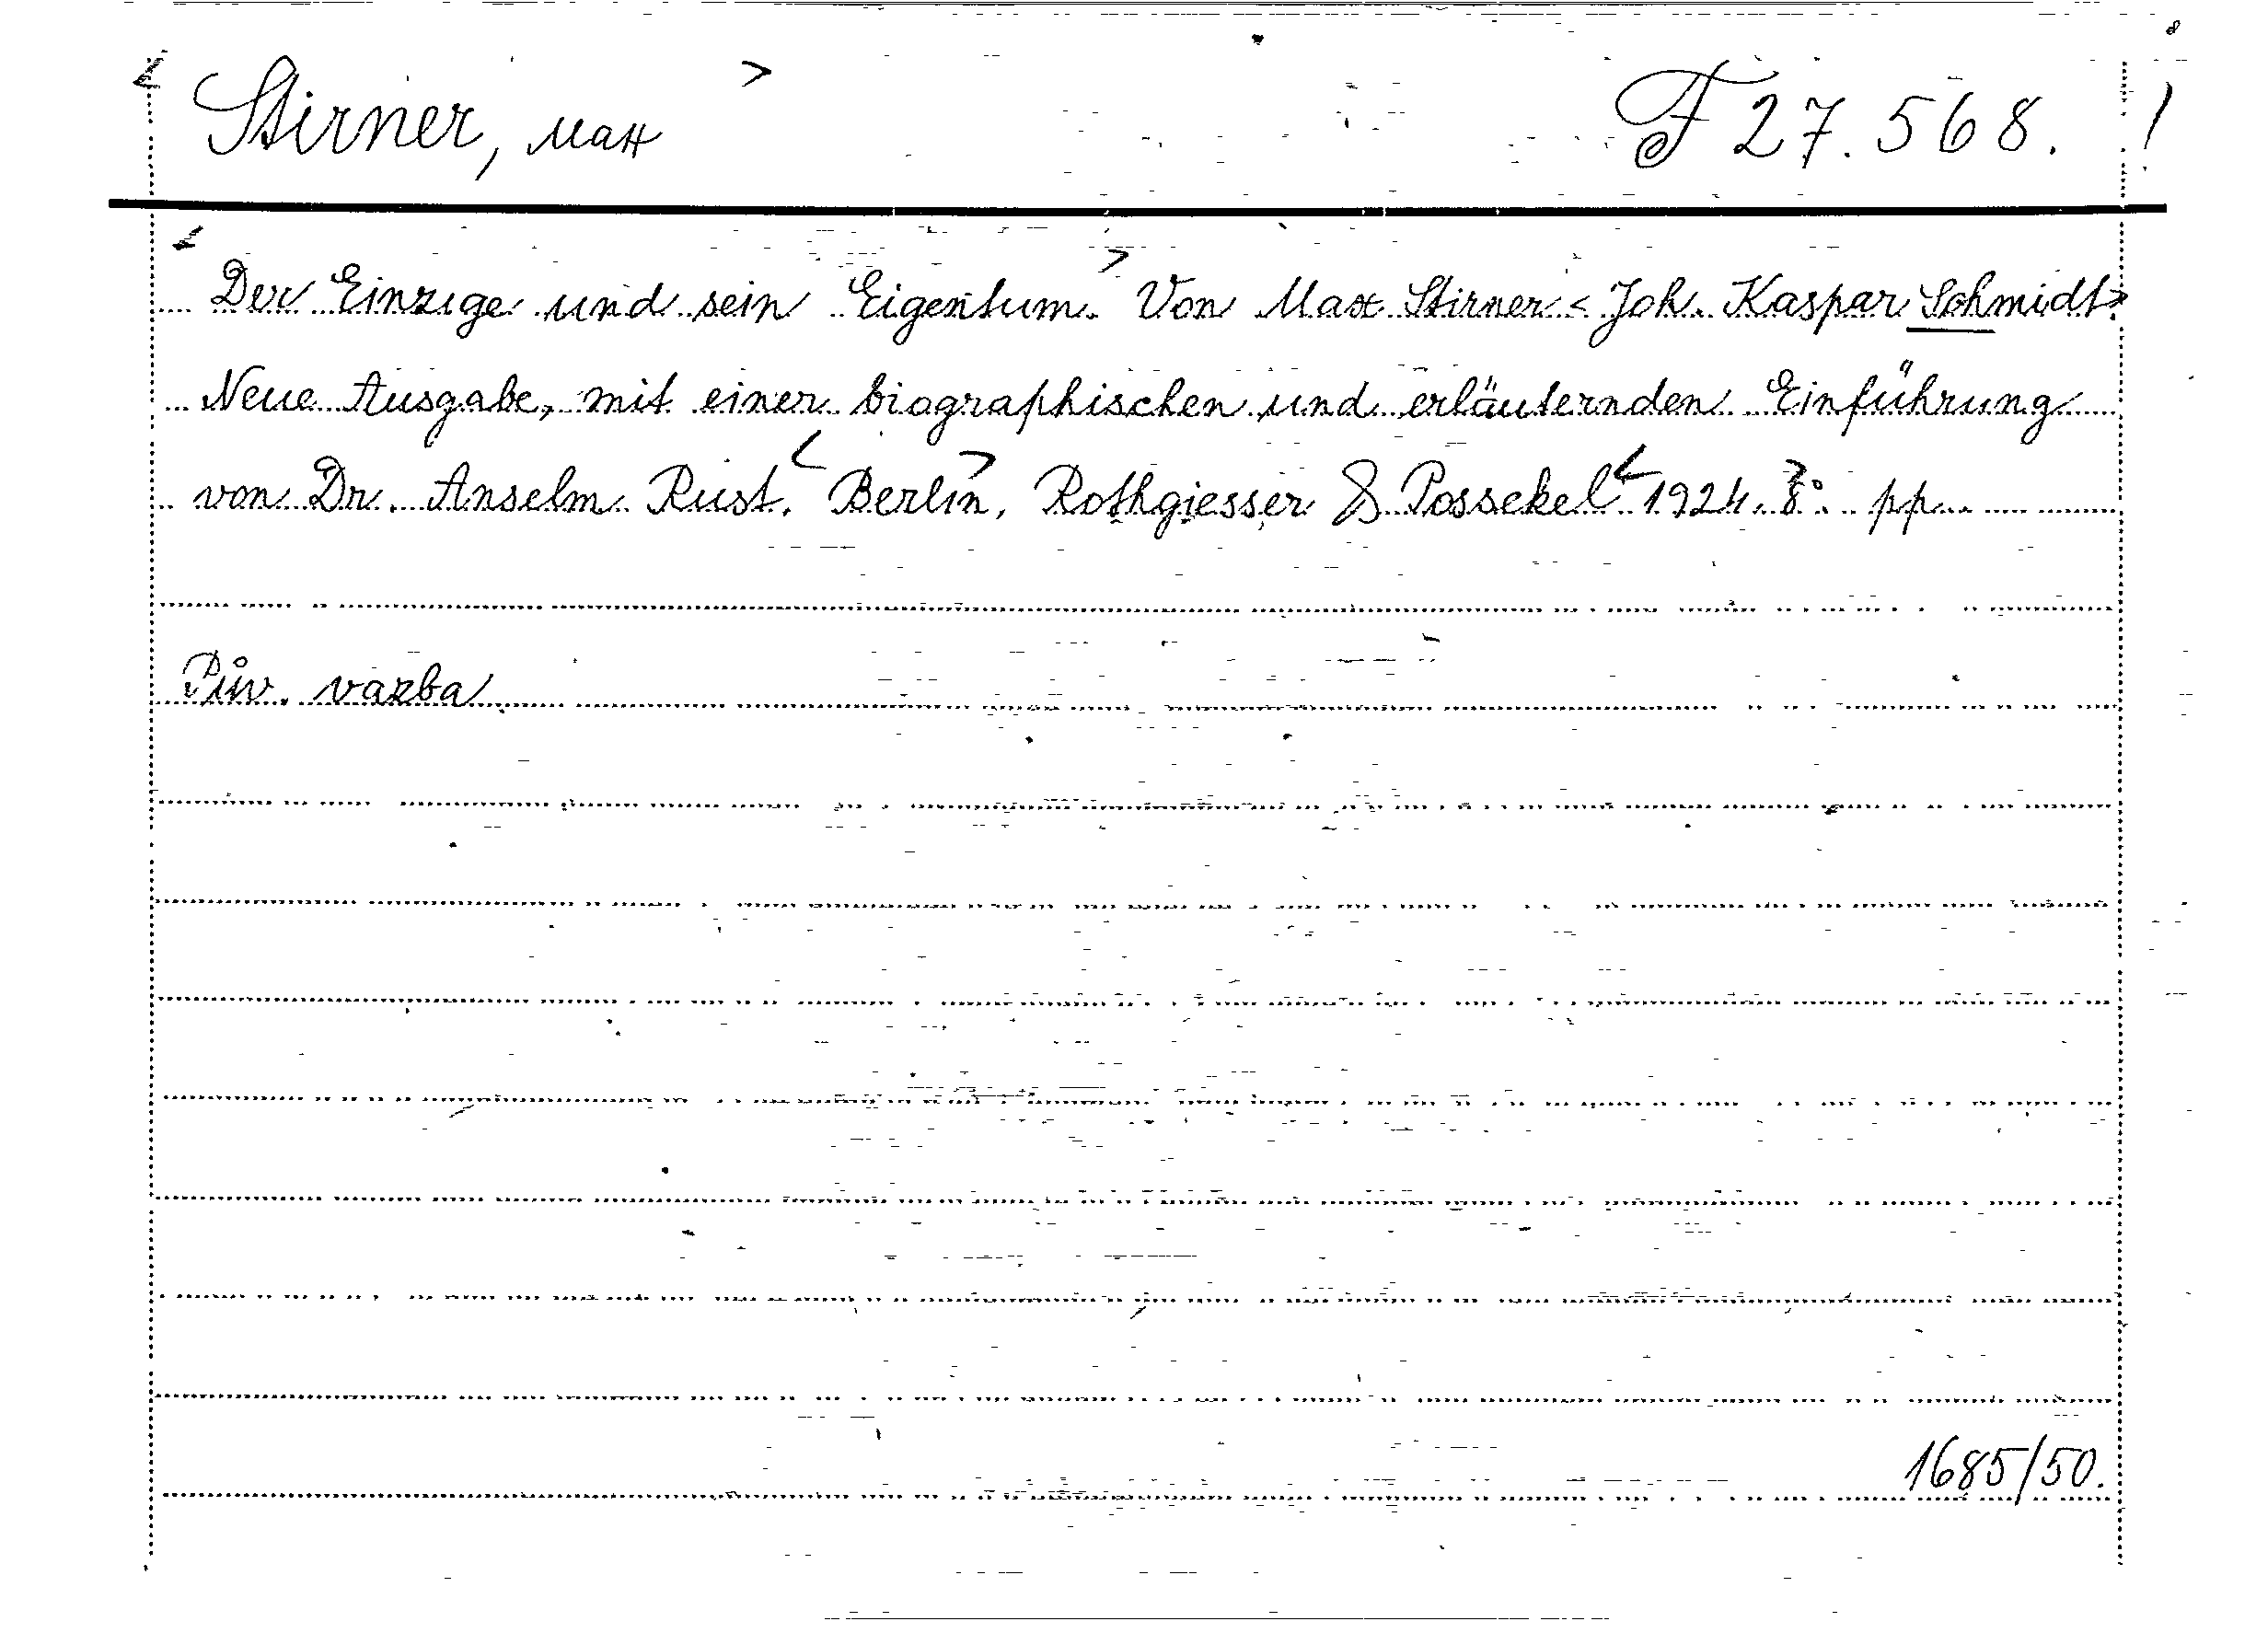 < Stirner, Max > F 27.568. /
< Der Einzige und sein Eigentum.> Von Max Stirner < Joh. Kaspar Schmidt>.
Neue Ausgabe, mit einer biographischen und erläuternden Einführung
von Dr. Anselm Rust. < Berlin >, Rothgiesser & Possekel < 1924.> 8°. pp.
Pův. vazba
1685/50.